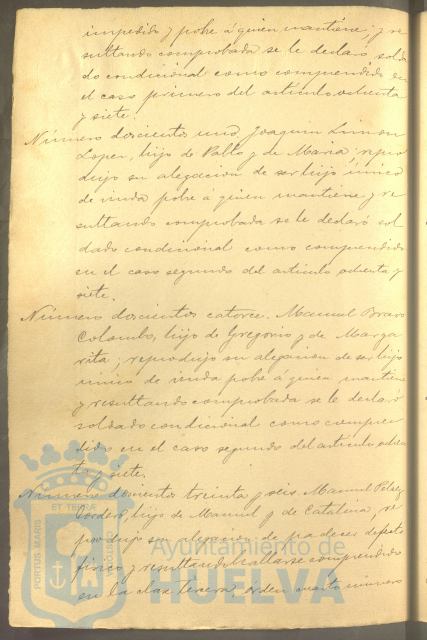 impedido y pobre á quien mantiene; y re
sultando comprobada se le declaró solda
do condicional como comprendido en
el caso primero del artículo ochenta
y siete.
Número doscientos uno, Joaquin Limon
Lopez, hijo de Pablo y de Maria; repro
dujo su alegacion de ser hijo único
de viuda pobre á quien mantiene y re
sultando comprobada se le declaró sol
dado condicional como comprendido
en el caso segundo del artículo ochenta y
siete.
Número doscientos catorce. Manuel Bravo
Colombo, hijo de Gregorio y de Marga
rita; reprodujo su alegacion de ser hijo
único de viuda pobre á quien mantiene
y resultando comprobada se le declaró
soldado condicional como compren
dido en el caso segundo del artículo ochen
ta y siete.
Número doscientos treinta y seis, Manuel Pelaez
Cordero, hijo de Manuel y de Catalina, re
produjo su alegacion de padecer defecto
físico y resultando hallarse comprendido
en la clase tercera, órden cuarto número
PORTUS MARIS
ET TERRAE
CUSTODIA
Ayuntamiento de
HUELVA